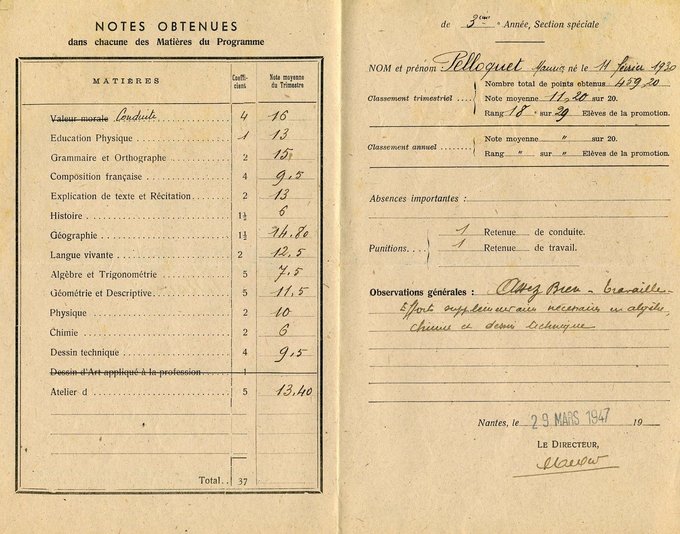 NOTES OBTENUES
dans chacune des Matières du Programme
MATIÈRES Coeffi-cient Note moyenne du Trimestre
Valeur morale Conduite 4 16
Education Physique 1 13
Grammaire et Orthographe 2 15
Composition française 4 9,5
Explication de texte et Récitation 2 13
Histoire 1½ 6
Géographie 1½ 14.80
Langue vivante 2 12,5
Algèbre et Trigonométrie 5 7,5
Géométrie et Descriptive 5 11,5
Physique 2 10
Chimie 2 6
Dessin technique 4 9,5
Dessin d'Art appliqué à la profession 1
Atelier d 5 13,40
Total 37
de 3ème Année, Section spéciale
NOM et prénom Pelloquet Maurice né le 11 février 1930
Nombre total de points obtenus 459,20
Classement trimestriel Note moyenne 11,20 sur 20.
Rang 18e sur 29 Elèves de la promotion.
Classement annuel Note moyenne " sur 20.
Rang " sur " Elèves de la promotion.
Absences importantes :
Punitions 1 Retenue de conduite.
1 Retenue de travail.
Observations générales : Assez Bien - travaille -
Efforts supplémentaires nécessaires en algèbre,
chimie et dessin technique
Nantes, le 29 MARS 1947 19
LE DIRECTEUR,